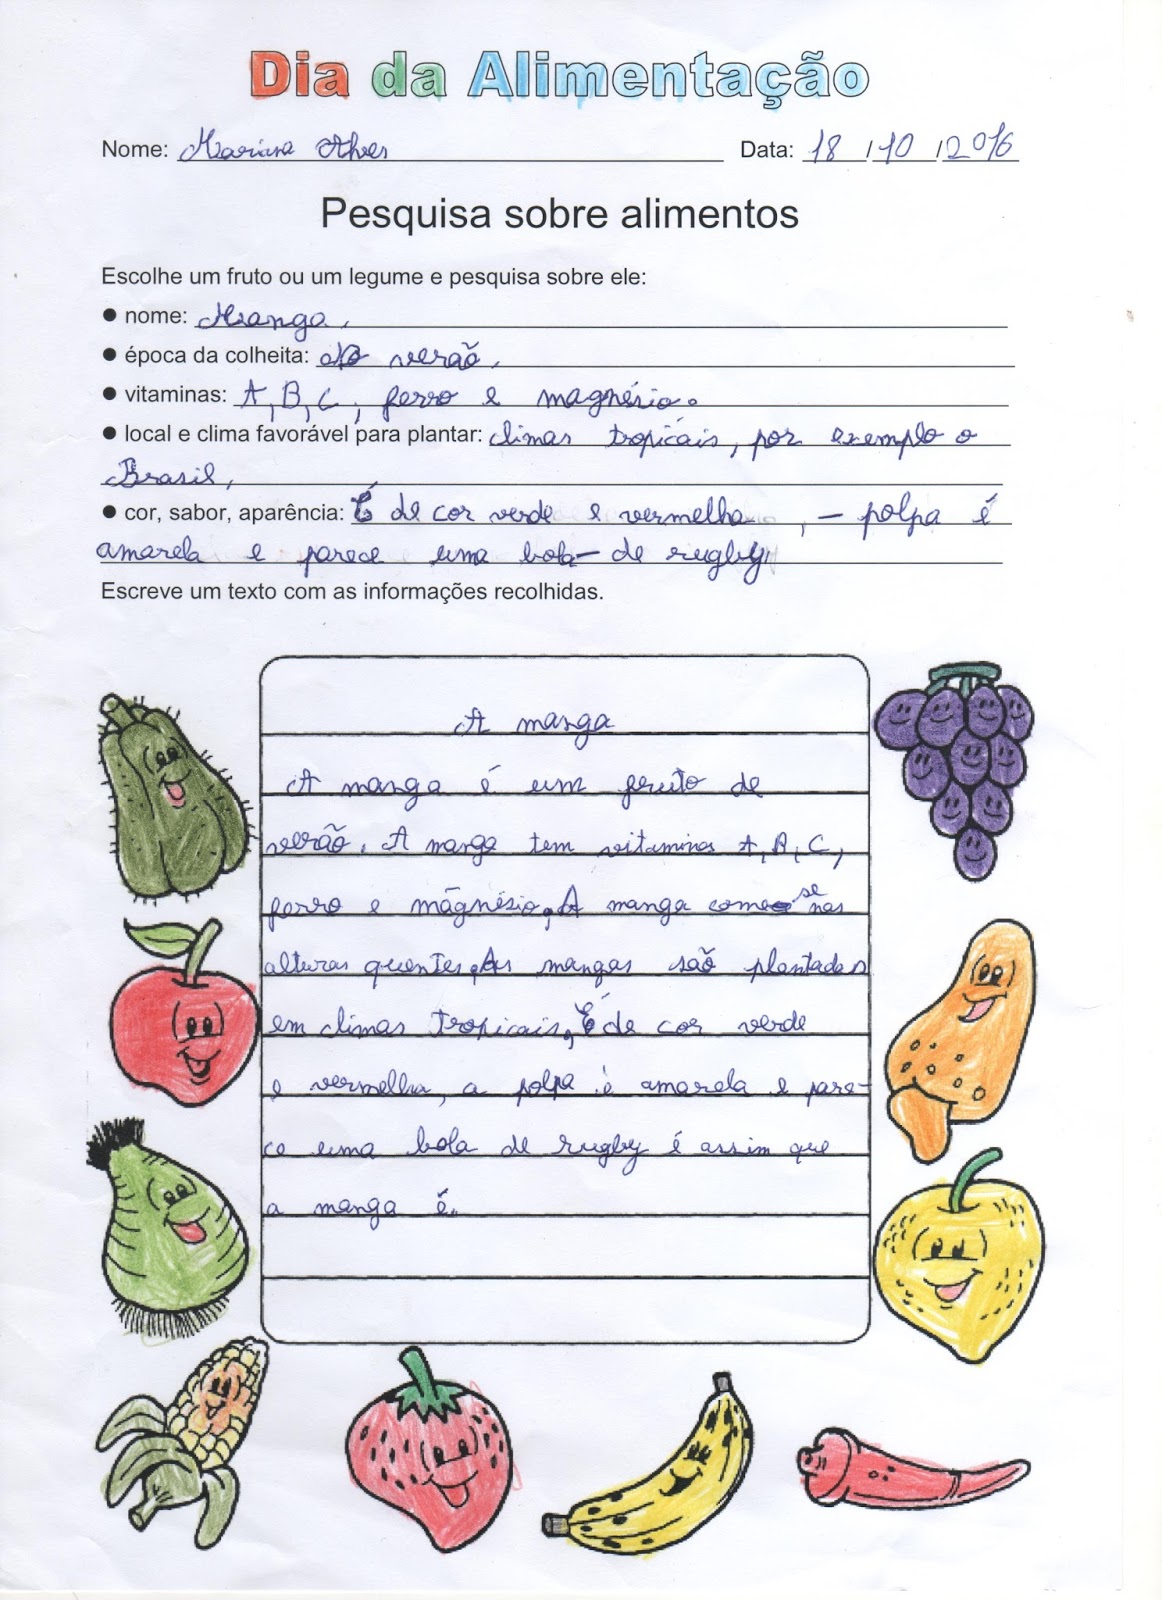 Dia da Alimentação
Nome: Mariana Alves Data: 18 / 10 / 2016
Pesquisa sobre alimentos
Escolhe um fruto ou um legume e pesquisa sobre ele:
● nome: Manga.
● época da colheita: No verão.
● vitaminas: A, B, C, ferro e magnésio.
● local e clima favorável para plantar: climas tropicais, por exemplo o
Brasil.
● cor, sabor, aparência: É de cor verde e vermelha, – polpa é
amarela e parece uma bola de rugby.
Escreve um texto com as informações recolhidas.
A manga
A manga é um fruto de
verão. A manga tem vitaminas A, B, C,
ferro e magnésio. A manga come se nas
alturas quentes. As mangas são plantadas
em climas tropicais. É de cor verde
e vermelha, a polpa é amarela e pare-
ce uma bola de rugby é assim que
a manga é.